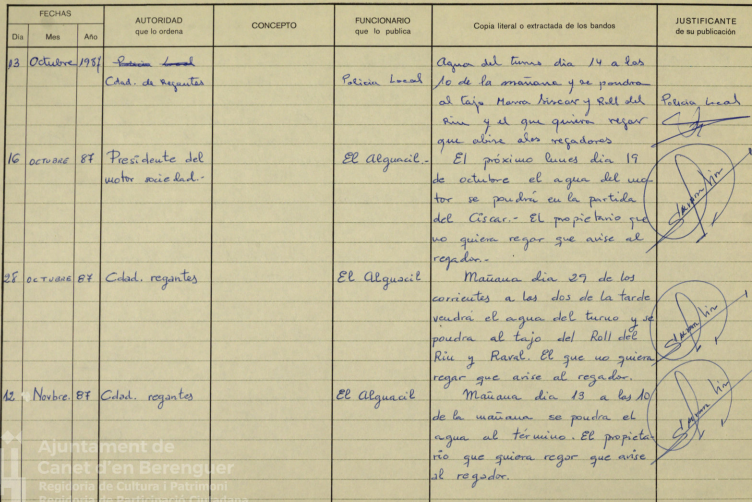 FECHAS
Día Mes Año
AUTORIDAD
que lo ordena
CONCEPTO
FUNCIONARIO
que lo publica
Copia literal o extractada de los bandos
JUSTIFICANTE
de su publicación
13 Octubre 1987 Policia Local
Cdad. de Regantes
Policia Local
Agua del turno dia 14 a las
10 de la mañana y se pondra
al tajo Marra Siscar y Roll del
Riu y el que quiera regar
que abise alos regadores
Policia Local
16 OCTUBRE 87 Presidente del
motor sociedad.-
El Alguacil.-
El próximo lunes dia 19
de octubre el agua del mo-
tor se pondrá en la partida
del Ciscar.- El propietario que
no quiera regar que avise al
regador.-
28 OCTUBRE 87 Cdad. regantes
El Alguacil
Mañana dia 29 de los
corrientes a las dos de la tarde
vendrá el agua del turno y se
pondra al tajo del Roll del
Riu y Raval. El que no quiera
regar que avise al regador.
12 Novbre. 87 Cdad. regantes
El Alguacil
Mañana dia 13 a las 10
de la mañana se pondra el
agua al término. El propieta-
rio que quiera regar que avise
al regador.
Ajuntament de
Canet d'en Berenguer
Regidoria de Cultura i Patrimoni
Regidoria de Participació Ciutadana